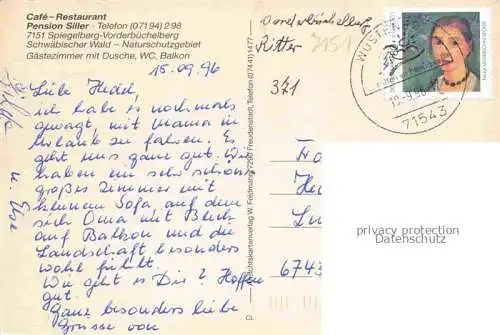 Café–Restaurant
Pension Siller · Telefon (07194) 298
7151 Spiegelberg-Vorderbüchelberg
Schwäbischer Wald – Naturschutzgebiet
Gästezimmer mit Dusche, WC, Balkon
15.09.96
Liebe Hedel,
ich habe es nochmals
gewagt, mit Mama in
Urlaub zu fahren. Es
geht uns ganz gut. Wir
haben ein sehr schönes
großes Zimmer mit
kleinem Sofa, auf dem
sich Oma mit Blick
auf Balkon und die
Landschaft besonders
wohl fühlt.
Wie geht es Dir? Hoffen
gut.
Ganz besonders liebe
Grüsse von
u. Else
Ansichtskartenverlag W. Feldmann, 7290 Freudenstadt, Telefon (07441) 1477
CL
Vorderbüchelberg
Ritter 7151
371
WÜSTENROT
71543
6743
privacy protection
Datenschutz